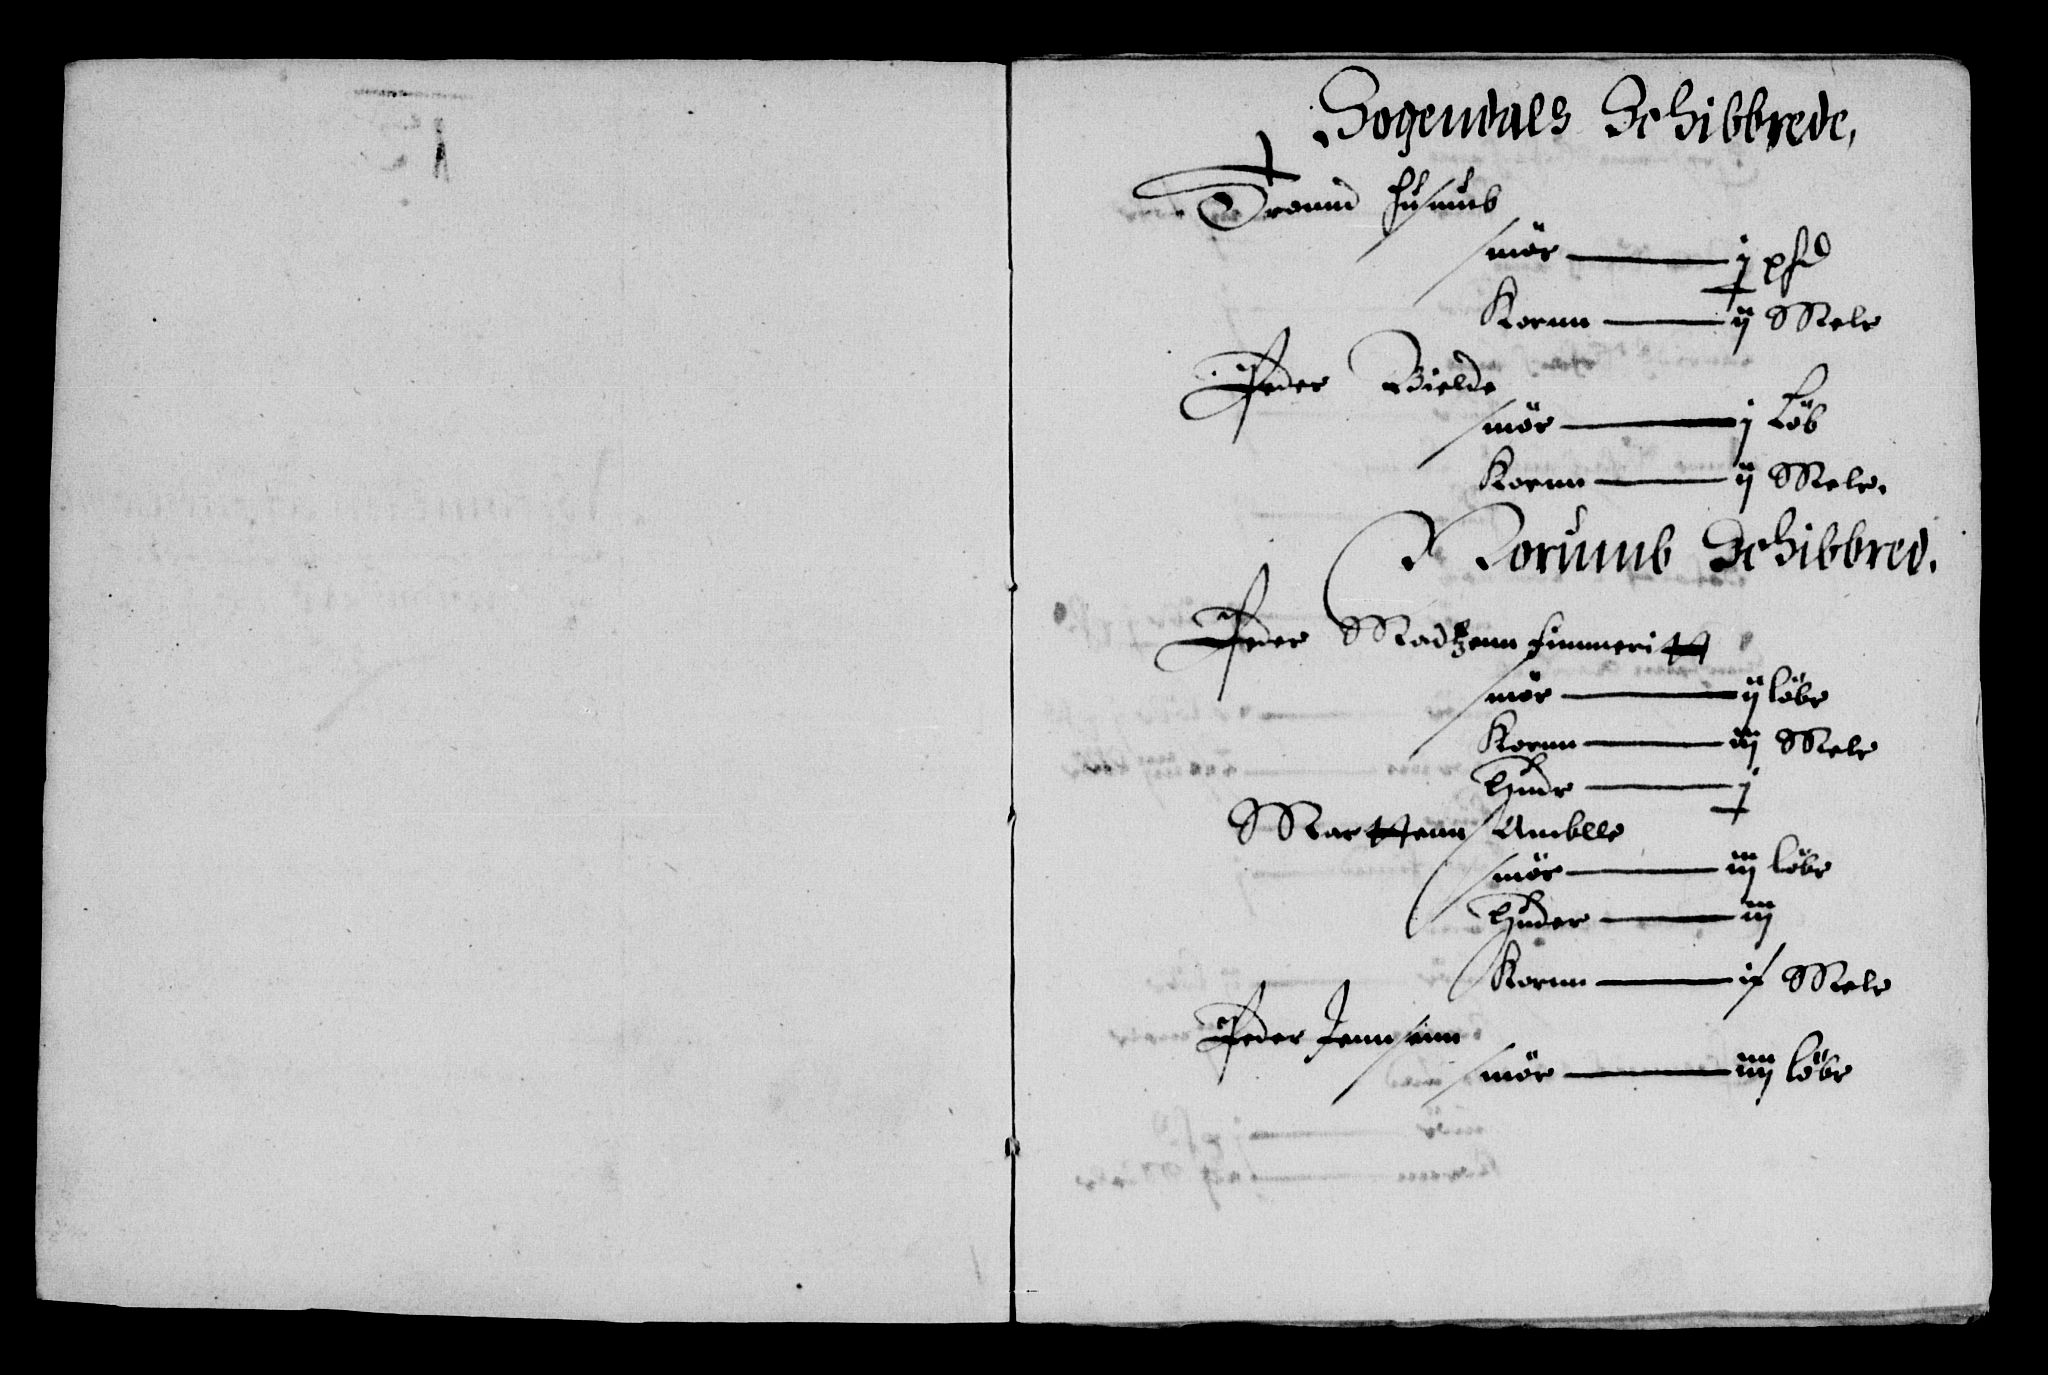 Sogendals Schibbrede,
Tronnd Husumb
smör — j pfd
Kornn — ij Mele
Peder Bielde
smör — j Löb
Kornn — ij Mele.
Norumb Schibbred.
Peder Madtzenn fimmeritt
smör — ij löbe
Kornn — iij Mele
Hude — j
Marttenn Amblle
smör — iij löbe
Huder — iij
Kornn — Mele
Peder Jennsenn
smör — iiij löbe